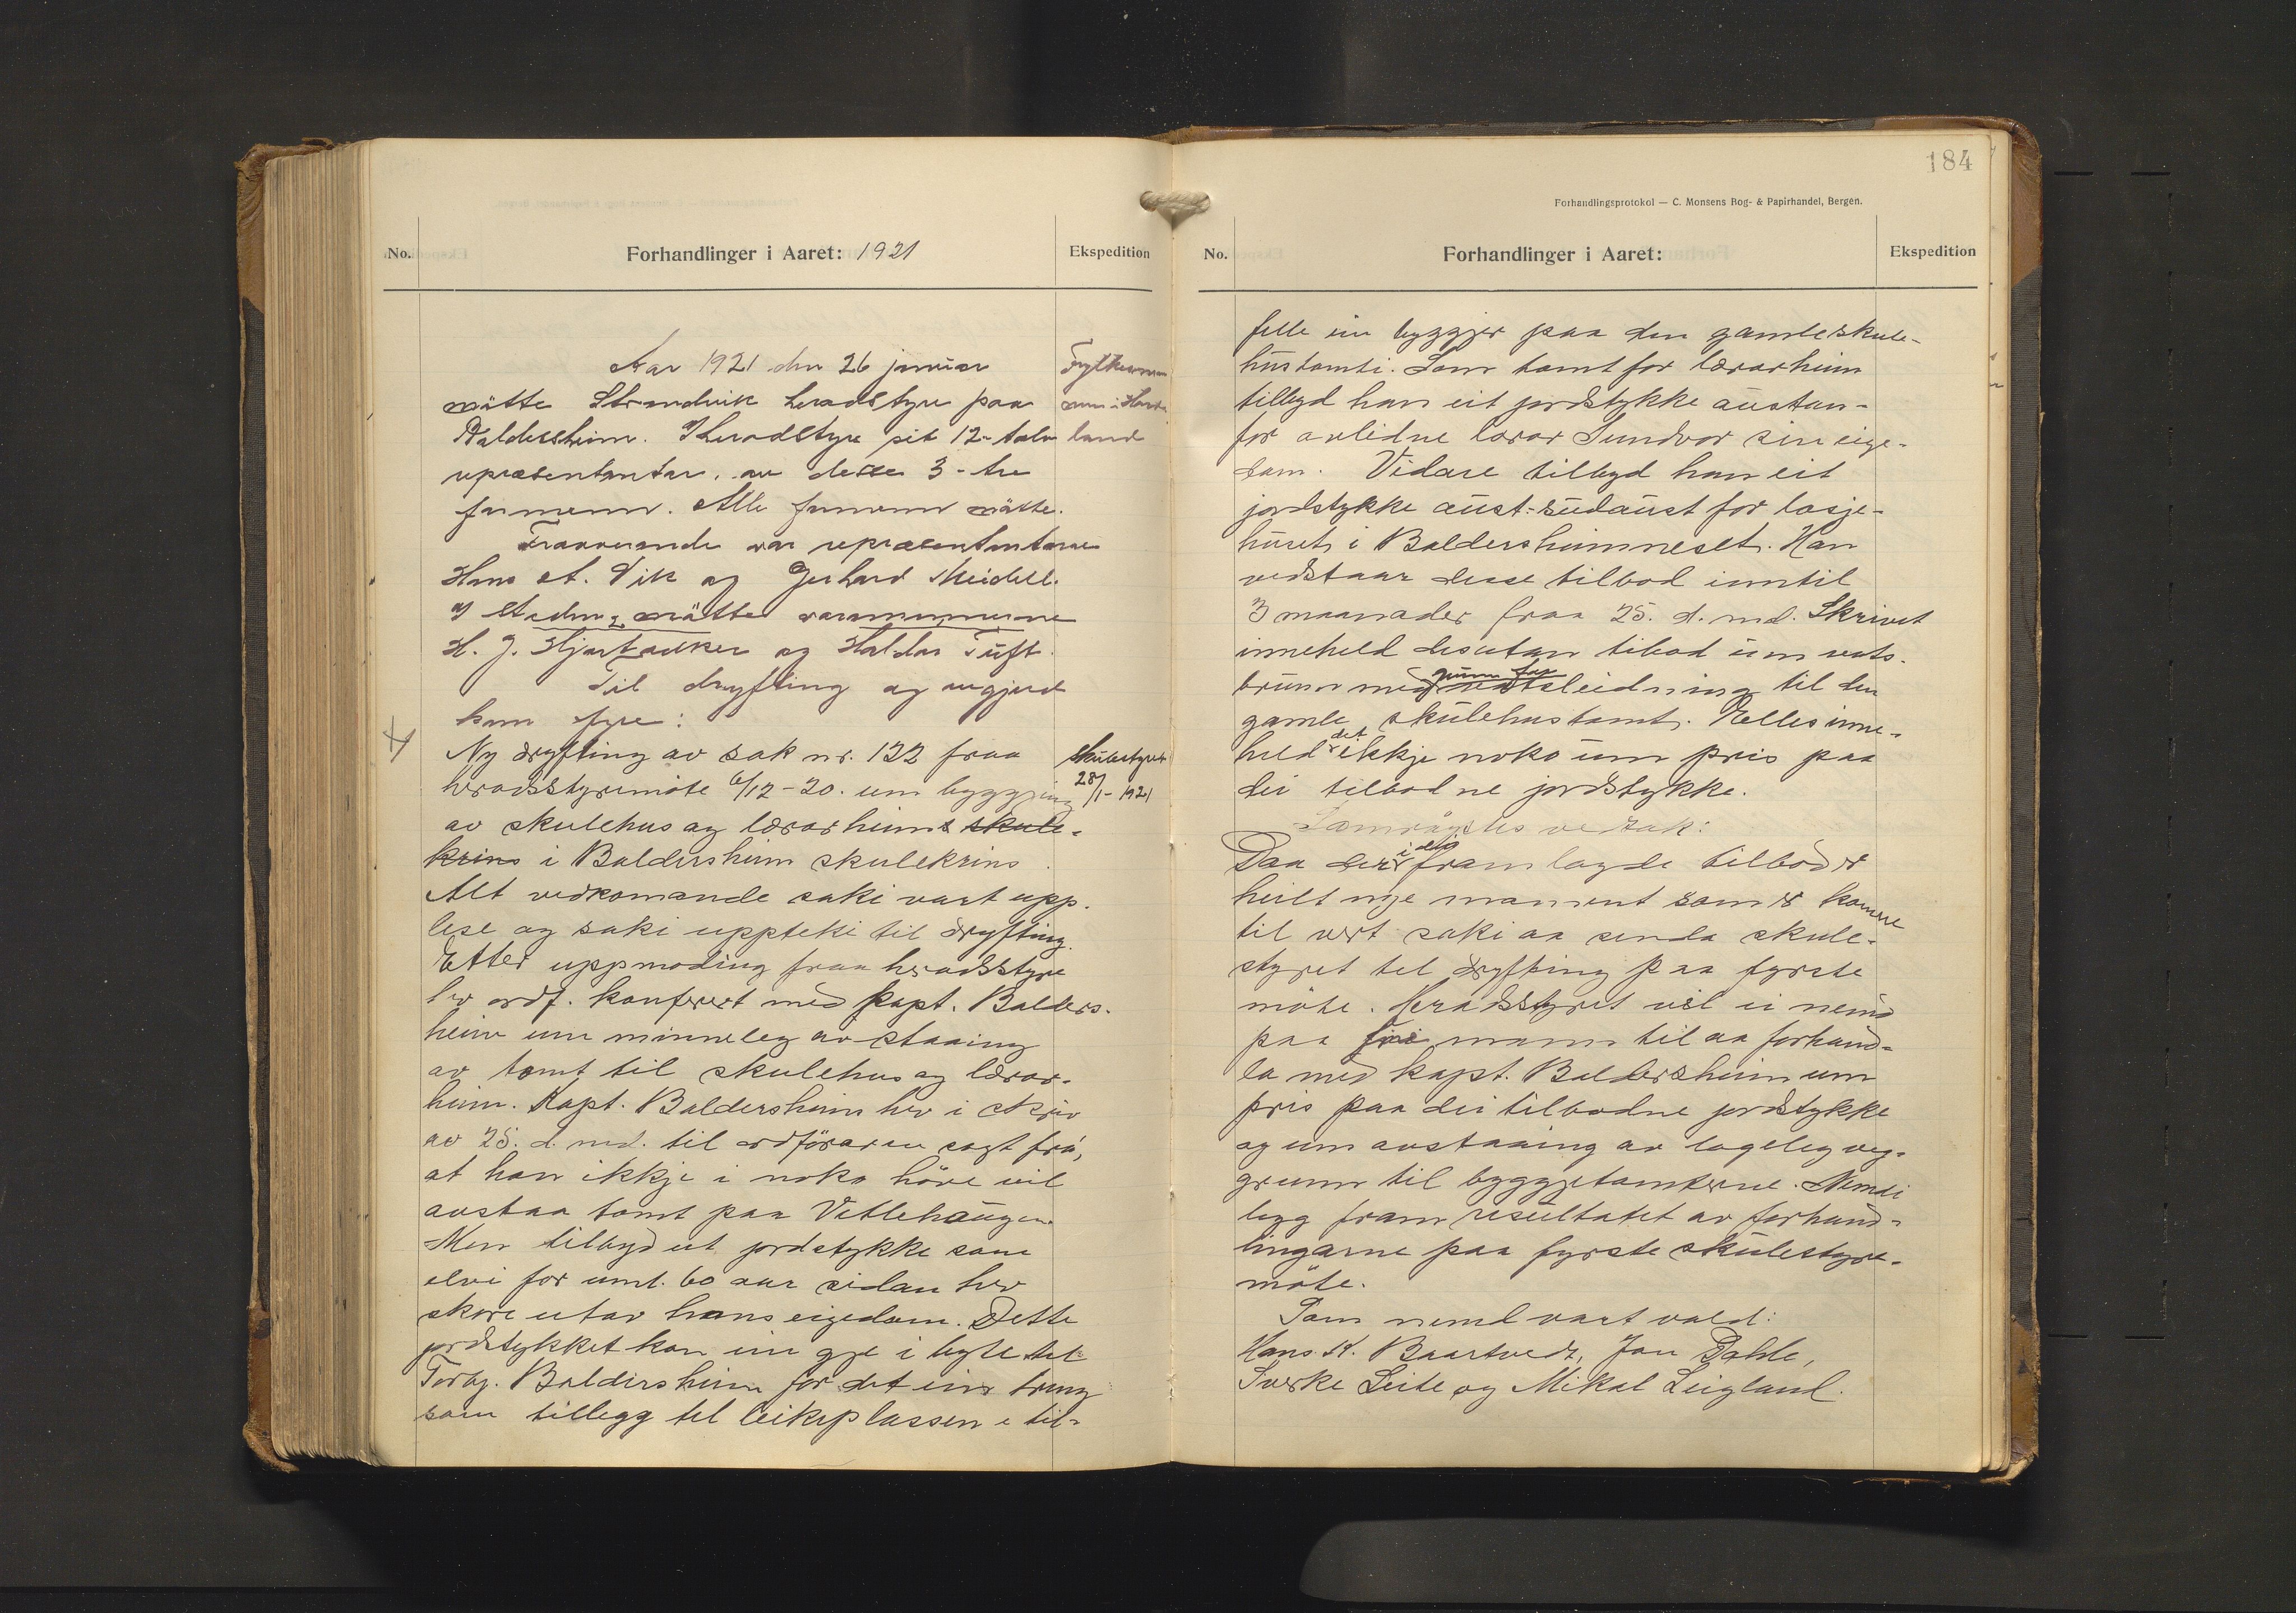 No.
Forhandlinger i Aaret: 1921
Ekspedition
Aar 1921 den 26 januar
møtte Strandvik heradstyre paa
Baldersheim. I heradstyre sit 12-tolv
representantar, av desse 3-tre
formenn. Alle formenn møtte.
Fraverande var representantarne
Hans A. Vik og Gerhard Meidell.
I staden møtte varamennerne
H. J. Hjartaaker og Haldor Tuft.
Til dryfting og avgjerd
kom fyre:
Fylkesman
nen i Horda
land
Ny dryfting av sak nr. 122 fraa
heradsstyremøte 6/12-20. um byggjing
av skulehus og lærarheim i skule-
krins i Baldersheim skulekrins
Skulestyret
28/1-1921
Alt vedkomande saki vart upp-
lese og saki uppteki til dryfting.
Etter uppmoding fraa heradsstyre
hev ordf. konferert med kapt. Balders-
heim um minneleg avstaaing
av tomt til skulehus og lærar-
heim. Kapt. Baldersheim hev i skriv
av 25. d. md. til ordføraren sagt frå,
at han ikkje i noko høve vil
avstaa tomt paa Vetlehaugen.
Men tilbyd eit jordstykke som
elvi for umt. 60 aar sidan hev
skore utav hans eigedom. Dette
jordstykket kan ein gje i byte til
Torbj. Baldersheim for det ein treng
som tillegg til leikeplassen i til-
184
Forhandlingsprotokol — C. Monsens Bog- & Papirhandel, Bergen.
No.
Forhandlinger i Aaret:
Ekspedition
felle ein byggjer paa den gamle skule-
hustomti. Som tomt for lærarheim
tilbyd han eit jordstykke austan-
for avlidne lærar Sundvor sin eige-
dom. Vidare tilbyd han eit
jordstykke aust-sudaust for losje-
huset i Baldersheimneset. Han
vedstaar desse tilbod inntil
3 maanader fraa 25. d. md. Skrivet
inneheld desutan tilbod um vats-
brunn med grunn for vatsleidning til den
gamle skulehustomt. Elles inne-
held det ikkje noko um pris paa
dei tilbodne jordstykke.
Samrøystes vedtak:
Daa der i dei framlagde tilbod er
heilt nye moment som er komne
til vert saki aa senda skule-
styret til dryfting paa fyrste
møte. Heradsstyret vel ei nemd
paa fire mann til aa forhand-
la med kapt. Baldersheim um
pris paa dei tilbodne jordstykke
og um avstaaing av lageleg veg-
grunn til byggjetomterne. Nemdi
legg fram resultatet av forhand-
lingarne paa fyrste skulestyre-
møte.
Som nemd vart vald:
Hans K. Baartvedt, Jon Dahle,
Sverke Leite og Mikal Leigland.